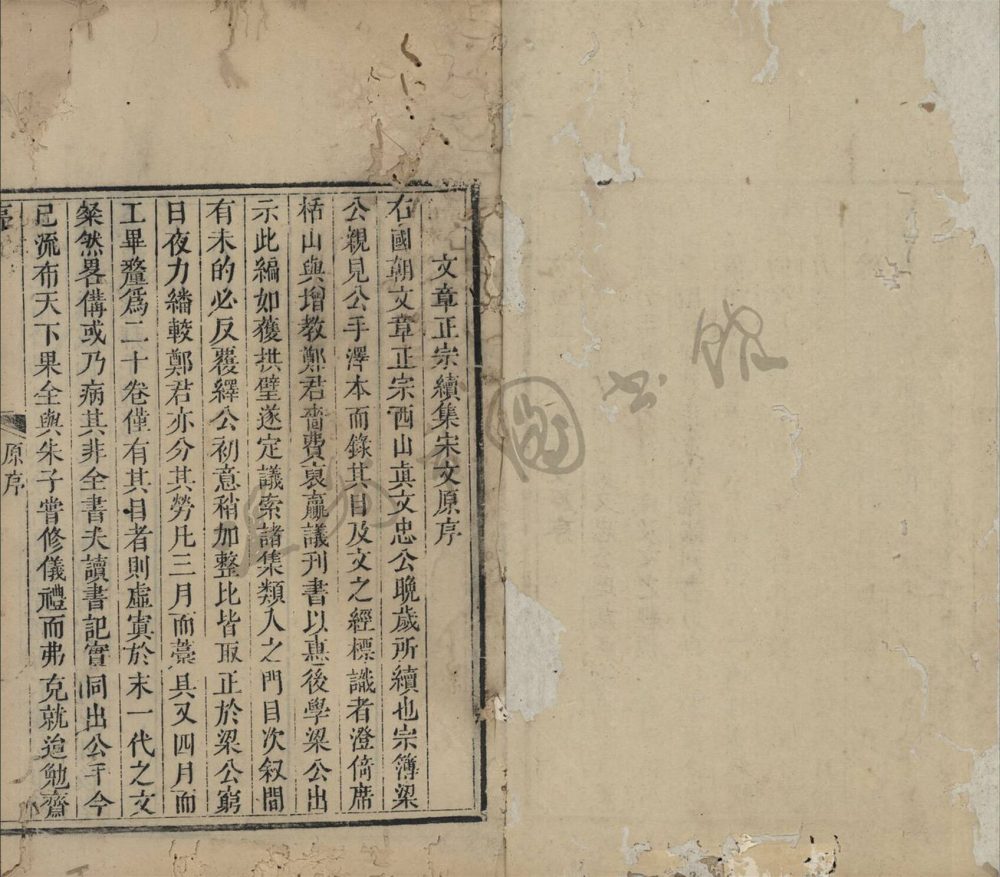 文章正宗續集宋文原序
右國朝文章正宗西山真文忠公晚歲所續也宗簿梁
公親見公手澤本而錄其目及文之經標識者澄倚席
栝山與增教鄭君嗇費裒羸議刊書以惠後學梁公出
示此編如獲拱璧遂定議索諸集類入之門目次叙間
有未的必反覆繹公初意稍加整比皆取正於梁公窮
日夜力繙較鄭君亦分其勞凡三月而藁具又四月而
工畢釐爲二十卷僅有其目者則虛寘於末一代之文
粲然畧備或乃病其非全書夫讀書記實同出公手今
已流布天下果全與朱子嘗修儀禮而弗克就迨勉齋
原序
圖書館